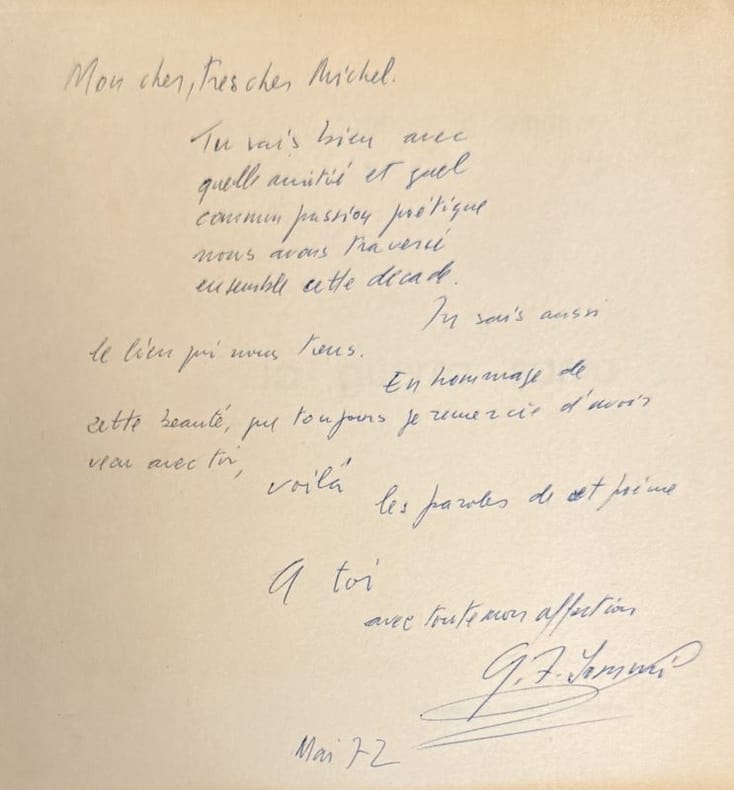 Mon cher, tres cher Michel.
Tu sais bien avec
quelle amitié et quel
commun passion poétique
nous avons traversé
ensemble cette décade.
Tu sais aussi
le lien qui nous tiens.
En hommage de
cette beauté, que toujours je remercie d'avoir
vecu avec toi,
voilà
les paroles de cet poème
A toi
avec toute mon affection
G. F.
Mai 72